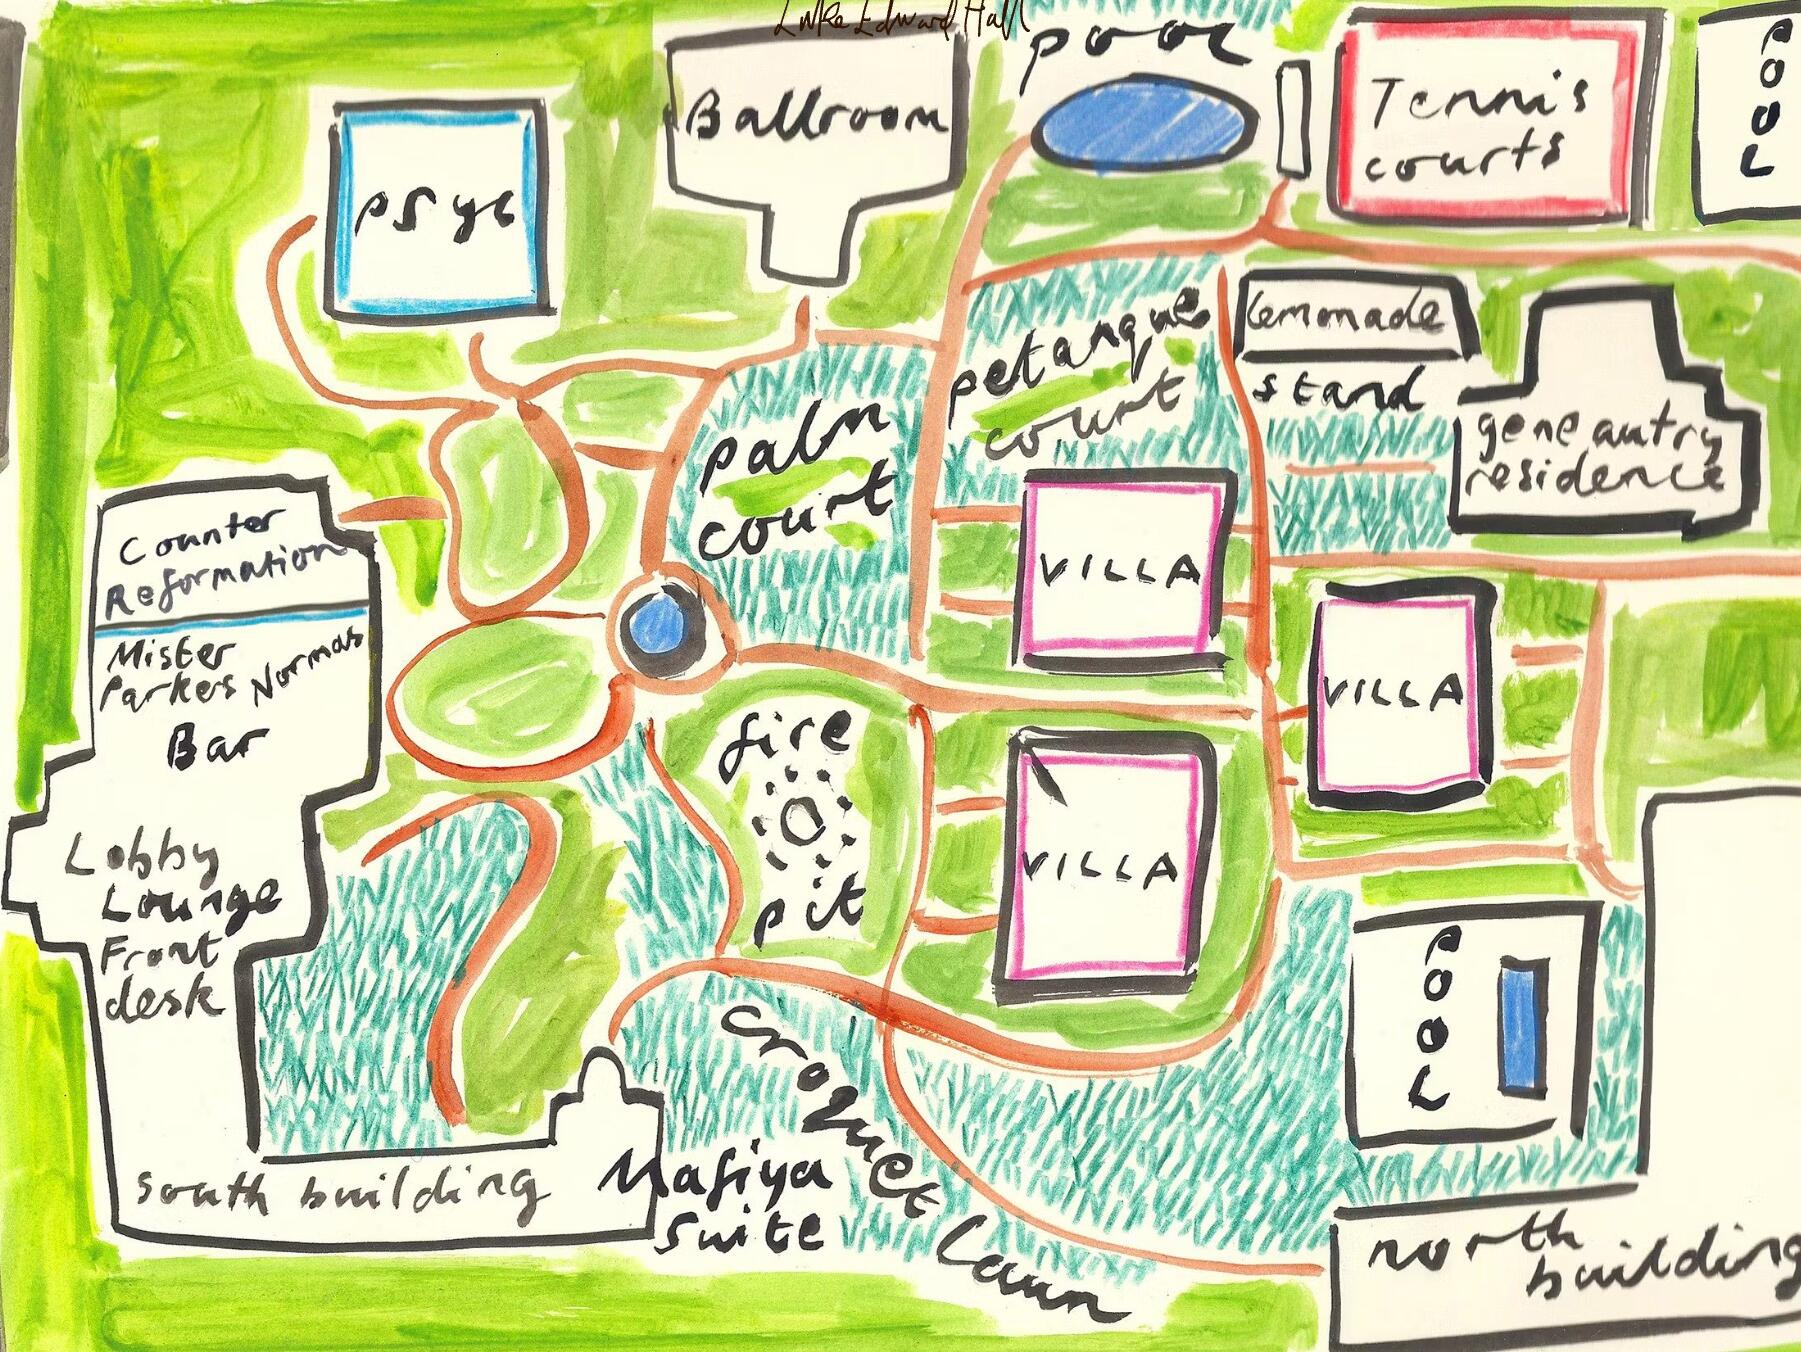 Luke Edward Hall
pool
Ballroom
Tennis
courts
POOL
PSYC
lemonade
stand
petanque
court
gene autry
residence
palm
court
Counter
Reformation
VILLA
Mister
Parkers
Normas
Bar
VILLA
fire
pit
VILLA
Lobby
Lounge
Front
desk
POOL
croquet lawn
south building
Mafiya
suite
north
building